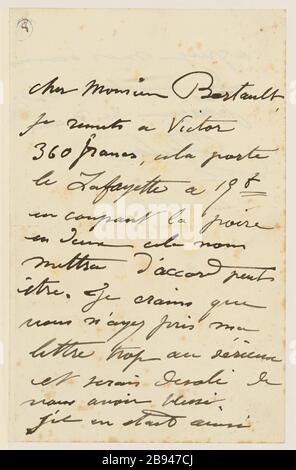 cher Monsieur Bertault,
je remets a Victor
360 francs, cela porte
le Lafayette a 19f
en coupant la poire
en deux cela nous
mettra d'accord peut
être. Je crains que
vous n'ayez pris ma
lettre trop au sérieux
et serais desolé de
vous avoir blessé
s'il en etait ainsi
alamy
Image ID: 2B947CJ
www.alamy.com